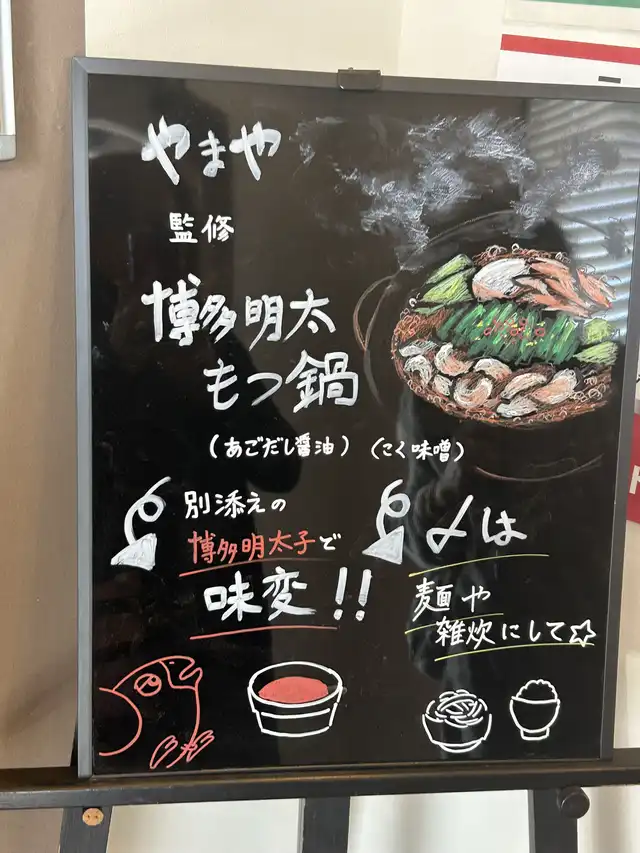 やまや
監修
博多明太
もつ鍋
(あごだし醤油) (こく味噌)
別添えの
博多明太子で
味変!!
〆は
麺や
雑炊にして☆